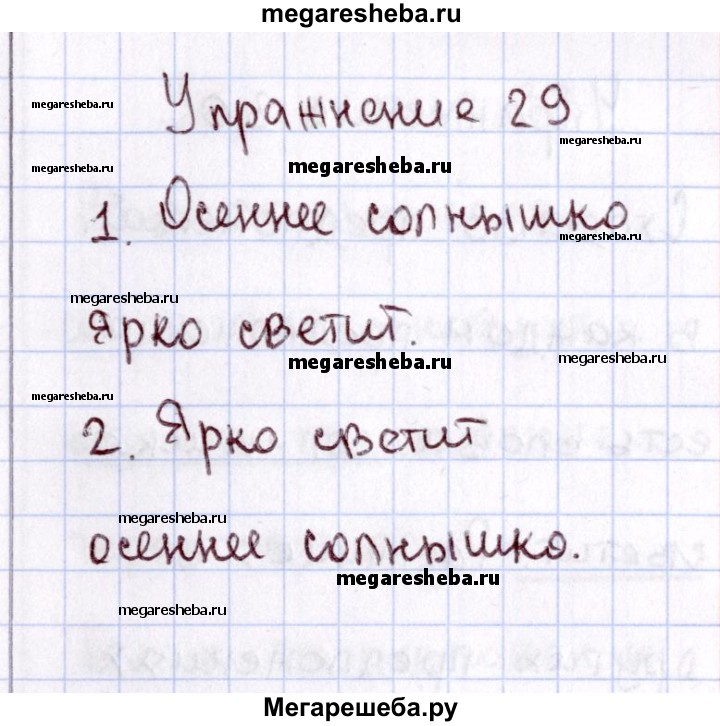 megaresheba.ru
Упражнение 29
megaresheba.ru
megaresheba.ru
megaresheba.ru
megaresheba.ru
1. Осеннее солнышко
megaresheba.ru
megaresheba.ru
ярко светит.
megaresheba.ru
megaresheba.ru
megaresheba.ru
2. Ярко светит
megaresheba.ru
осеннее солнышко.
megaresheba.ru
megaresheba.ru
Мегарешеба.ру